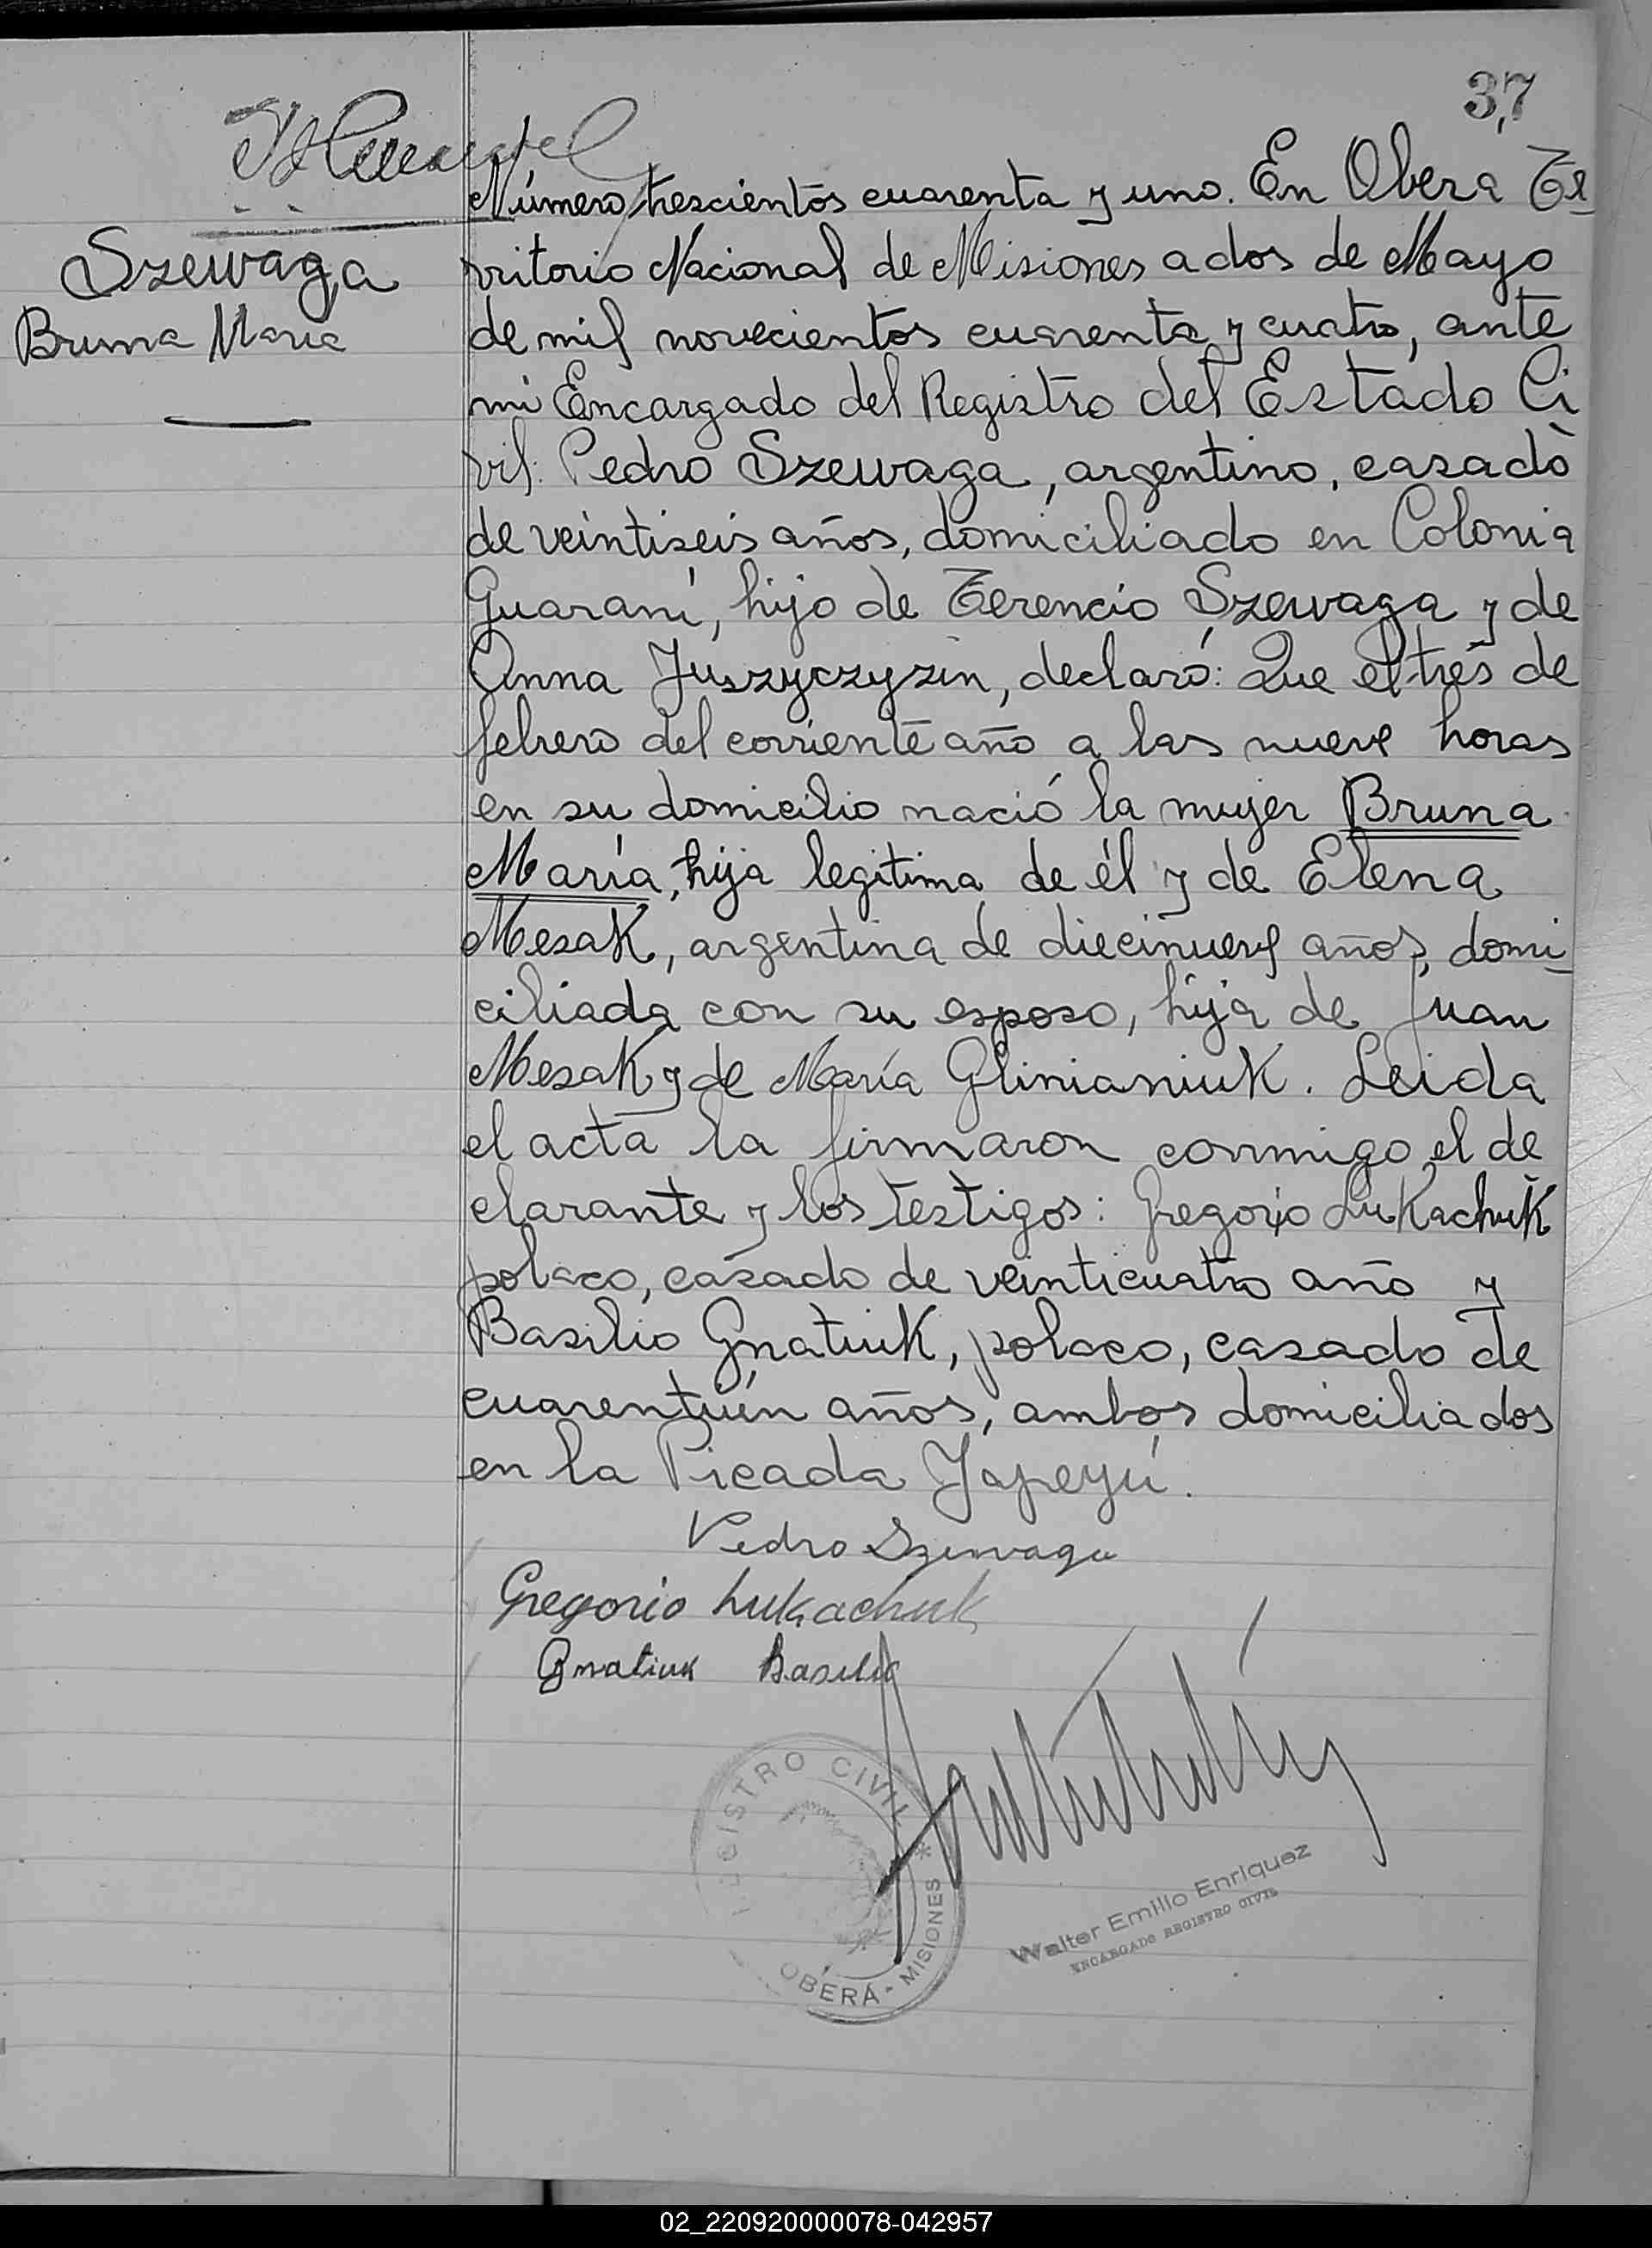 37
Número trescientos cuarenta y uno. En Oberá Te-
rritorio Nacional de Misiones a dos de Mayo
de mil novecientos cuarenta y cuatro, ante
mi Encargado del Registro del Estado Ci
vil: Pedro Szewaga, argentino, casado
de veintiseis años, domiciliado en Colonia
Guaraní, hijo de Terencio Szewaga y de
Anna Juszyczyszin, declaró: Que el tres de
febrero del corriente año a las nueve horas
en su domicilio nació la mujer Bruna
María, hija legitima de él y de Elena
Mesak, argentina de diecinueve años, domi-
ciliada con su esposo, hija de Juan
Mesak y de María Glinianiuk. Leida
el acta la firmaron conmigo el de
clarante y los testigos: Gregorio Lukachuk
polaco, casado de veinticuatro año y
Basilio Gnatiuk, polaco, casado de
cuarentiún años, ambos domiciliados
en la Picada Yapeyú.
Szewaga
Bruna María
Pedro Szewaga
Gregorio Lukachuk
Gnatiuk Basilio
REGISTRO CIVIL *
OBERÁ - MISIONES
Walter Emilio Enriquez
ENCARGADO REGISTRO CIVIL
02_220920000078-042957